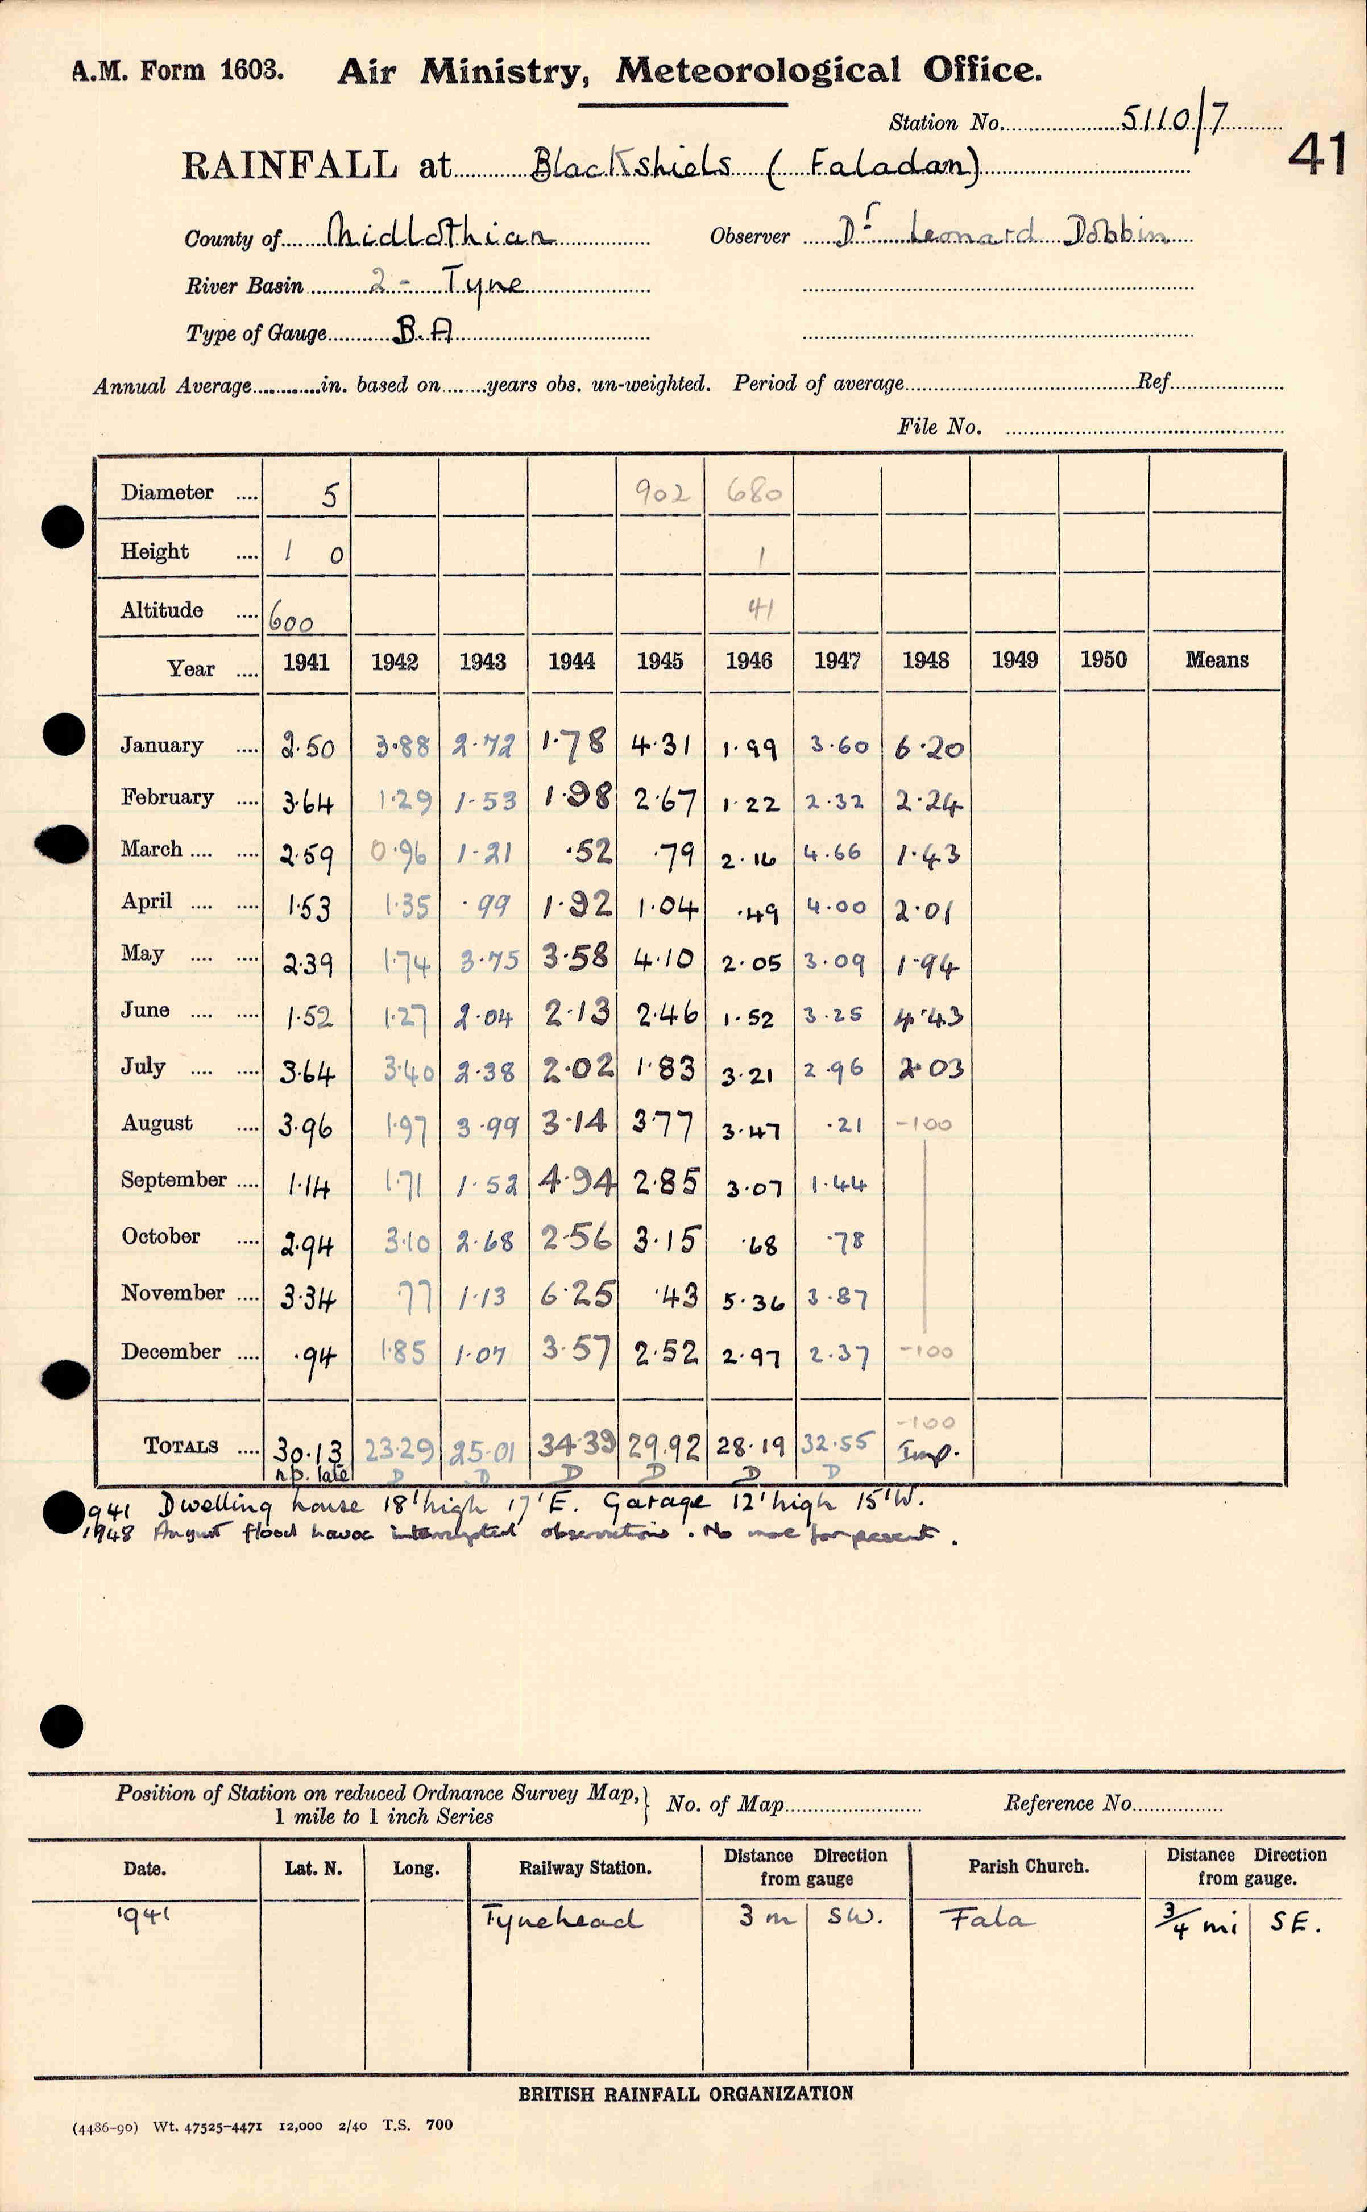 A.M. Form 1603. Air Ministry, Meteorological Office.
Station No. 5110/7
41
RAINFALL at Blackshiels (Faladam)
County of Midlothian Observer Dr Leonard Dobbin
River Basin 2 - Tyne
Type of Gauge B.A
Annual Average in. based on years obs. un-weighted. Period of average Ref.
File No.
Diameter 5 902 680
Height 1 0 1
Altitude 600 41
Year 1941 1942 1943 1944 1945 1946 1947 1948 1949 1950 Means
January 2.50 3.88 2.72 1.78 4.31 1.99 3.60 6.20
February 3.64 1.29 1.53 1.98 2.67 1.22 2.32 2.24
March 2.59 0.96 1.21 .52 .79 2.16 4.66 1.43
April 1.53 1.35 .99 1.92 1.04 .49 4.00 2.01
May 2.39 1.74 3.75 3.58 4.10 2.05 3.09 1.94
June 1.52 1.27 2.04 2.13 2.46 1.52 3.25 4.43
July 3.64 3.40 2.38 2.02 1.83 3.21 2.96 2.03
August 3.96 1.97 3.99 3.14 3.77 3.47 .21 -100
September 1.14 1.71 1.52 4.94 2.85 3.07 1.44
October 2.94 3.10 2.68 2.56 3.15 .68 .78
November 3.34 .77 1.13 6.25 .43 5.36 3.87
December .94 1.85 1.07 3.57 2.52 2.97 2.37 -100
-100
TOTALS 30.13 23.29 25.01 34.39 29.92 28.19 32.55 Imp.
n.p. late D D D D D D
1941 Dwelling house 18' high 17' E. Garage 12' high 15' W.
1948 August flood havoc interrupted observations. No more for present.
Position of Station on reduced Ordnance Survey Map, 1 mile to 1 inch Series } No. of Map Reference No.
Date. Lat. N. Long. Railway Station. Distance Direction from gauge Parish Church. Distance Direction from gauge.
1941 Tynehead 3 m SW. Fala 3/4 mi SE.
BRITISH RAINFALL ORGANIZATION
(4486-90) Wt. 47525-4471 12,000 2/40 T.S. 700